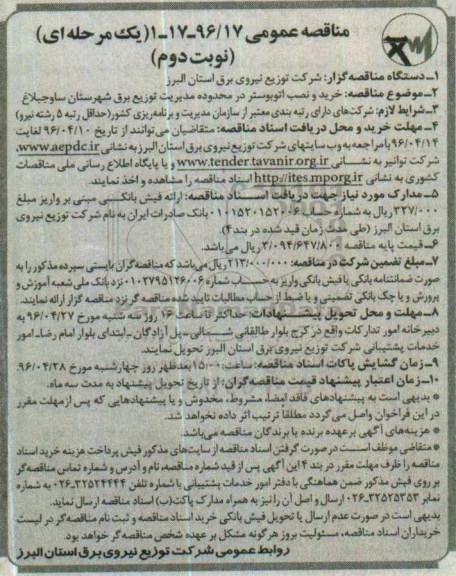 مناقصه عمومی ۹۶/۱۷-۱۷-۱(یک مرحله ای)
(نوبت دوم)
۱ـ دستگاه مناقصه گزار: شرکت توزیع نیروی برق استان البرز
۲ـ موضوع مناقصه: خرید و نصب اتوبوستر در محدوده مدیریت توزیع برق شهرستان ساوجبلاغ
۳ـ شرایط لازم: شرکت‌های دارای رتبه بندی معتبر از سازمان مدیریت و برنامه‌ریزی کشور(حداقل رتبه ۵ رشته نیرو)
۴ـ مهلت خرید و محل دریافت اسناد مناقصه: متقاضیان می‌توانند از تاریخ ۹۶/۰۴/۱۰ لغایت
۹۶/۰۴/۱۴ با مراجعه به وب سایتهای شرکت توزیع نیروی برق استان البرز به نشانی www.aepdc.ir،
شرکت توانیر به نشانی www.tender.tavanir.org.ir و یا پایگاه اطلاع رسانی ملی مناقصات
کشوری به نشانی http://iets.mporg.ir اسناد مناقصه را مشاهده و اخذ نمایند.
۵ـ مدارک مورد نیاز جهت دریافت اسناد مناقصه: ارائه فیش بانکی مبنی بر واریز مبلغ
۳۲۷/۰۰۰ ریال به شماره حساب ۰۱۰۱۵۲۰۱۵۲۰۰۶ بانک صادرات ایران به نام شرکت توزیع نیروی
برق استان البرز (طی مدت زمان قید شده در بند ۴).
۶ـ قیمت پایه مناقصه ۳/۰۹۴/۶۴۷/۸۰۰ ریال می‌باشد.
۷ـ مبلغ تضمین شرکت در مناقصه: ۲۱۳/۰۰۰/۰۰۰ ریال می‌باشد که مناقصه گران بایستی سپرده مذکور را به
صورت ضمانتنامه بانکی یا فیش بانکی واریز به حساب شماره ۰۱۰۲۷۹۵۱۲۶۰۰۶ نزد بانک ملی شعبه آموزش و
پرورش و یا چک بانکی تضمینی و یا ضبط از حساب مطالبات تایید شده مناقصه گر نزد مناقصه گزار ارائه نمایند.
۸ـ مهلت و محل تحویل پیشنهادات: حداکثر تا ساعت ۱۶ روز سه شنبه مورخ ۹۶/۰۴/۲۷ به
دبیرخانه امور تدارکات واقع در کرج بلوار طالقانی شمالی ـ پل آزادگان ـ ابتدای بلوار امام رضا ـ امور
خدمات پشتیبانی شرکت توزیع نیروی برق استان البرز تحویل نمایند.
۹ـ زمان گشایش پاکات اسناد مناقصه: ساعت ۱۵:۰۰ بعدظهر روز چهارشنبه مورخ ۹۶/۰۴/۲۸.
۱۰ـ زمان اعتبار پیشنهاد قیمت مناقصه گران: از تاریخ تحویل پیشنهاد به مدت سه ماه.
* بدیهی است به پیشنهادهای فاقد امضا، مشروط، مخدوش و یا پیشنهادهایی که پس از مهلت مقرر
در این فراخوان واصل می گردد مطلقا ترتیب اثر داده نخواهد شد.
* هزینه‌های آگهی برعهده برنده یا برندگان مناقصه می‌باشد.
* متقاضی موظف است در صورت گرفتن اسناد مناقصه از سایت‌های مذکور فیش پرداخت هزینه خرید اسناد
مناقصه را ظرف مهلت مقرر در بند ۴ این آگهی پس از قید شماره مناقصه، نام و آدرس و شماره تماس مناقصه گر
بر روی فیش مذکور ضمن هماهنگی با دفتر امور خدمات پشتیبانی با شماره تلفن ۳۲۵۲۴۴۴۴-۰۲۶ به شماره
نمابر ۳۲۵۲۵۳۵۳-۰۲۶ ارسال و اصل آن را نیز به همراه مدارک پاکت(ب) اسناد مناقصه ارسال نماید.
بدیهی است در صورت عدم ارسال یا تحویل فیش بانکی خرید اسناد مناقصه و ثبت نام مناقصه گر در لیست
خریداران اسناد مناقصه، مسئولیت بروز هرگونه مشکل بر عهده شخص مناقصه گر خواهد بود.
روابط عمومی شرکت توزیع نیروی برق استان البرز